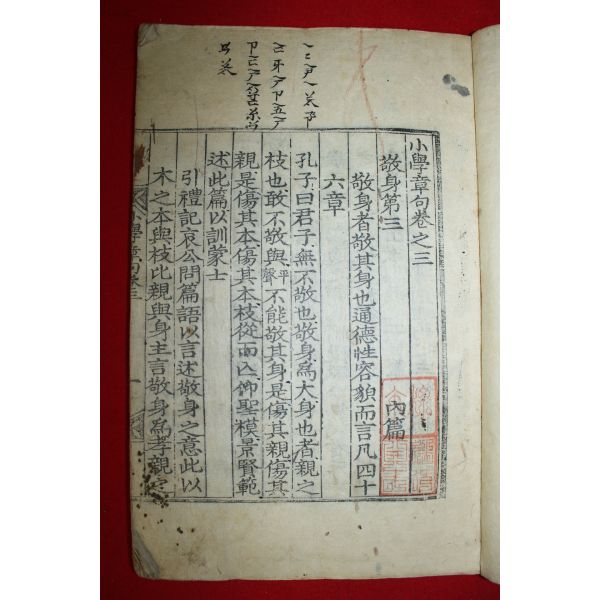 小學章句卷之三
敬身第三 內篇
敬身者敬其身也通德性容貌而言凡四十
六章
孔子曰君子無不敬也敬身爲大身也者親之
枝也敢不敬與平聲不能敬其身是傷其親傷其
親是傷其本傷其本枝從而亡仰聖模景賢範
述此篇以訓蒙士
引禮記哀公問篇語以言述敬身之意此以
木之本與枝比親與身主言敬身爲孝親
小學章句卷三